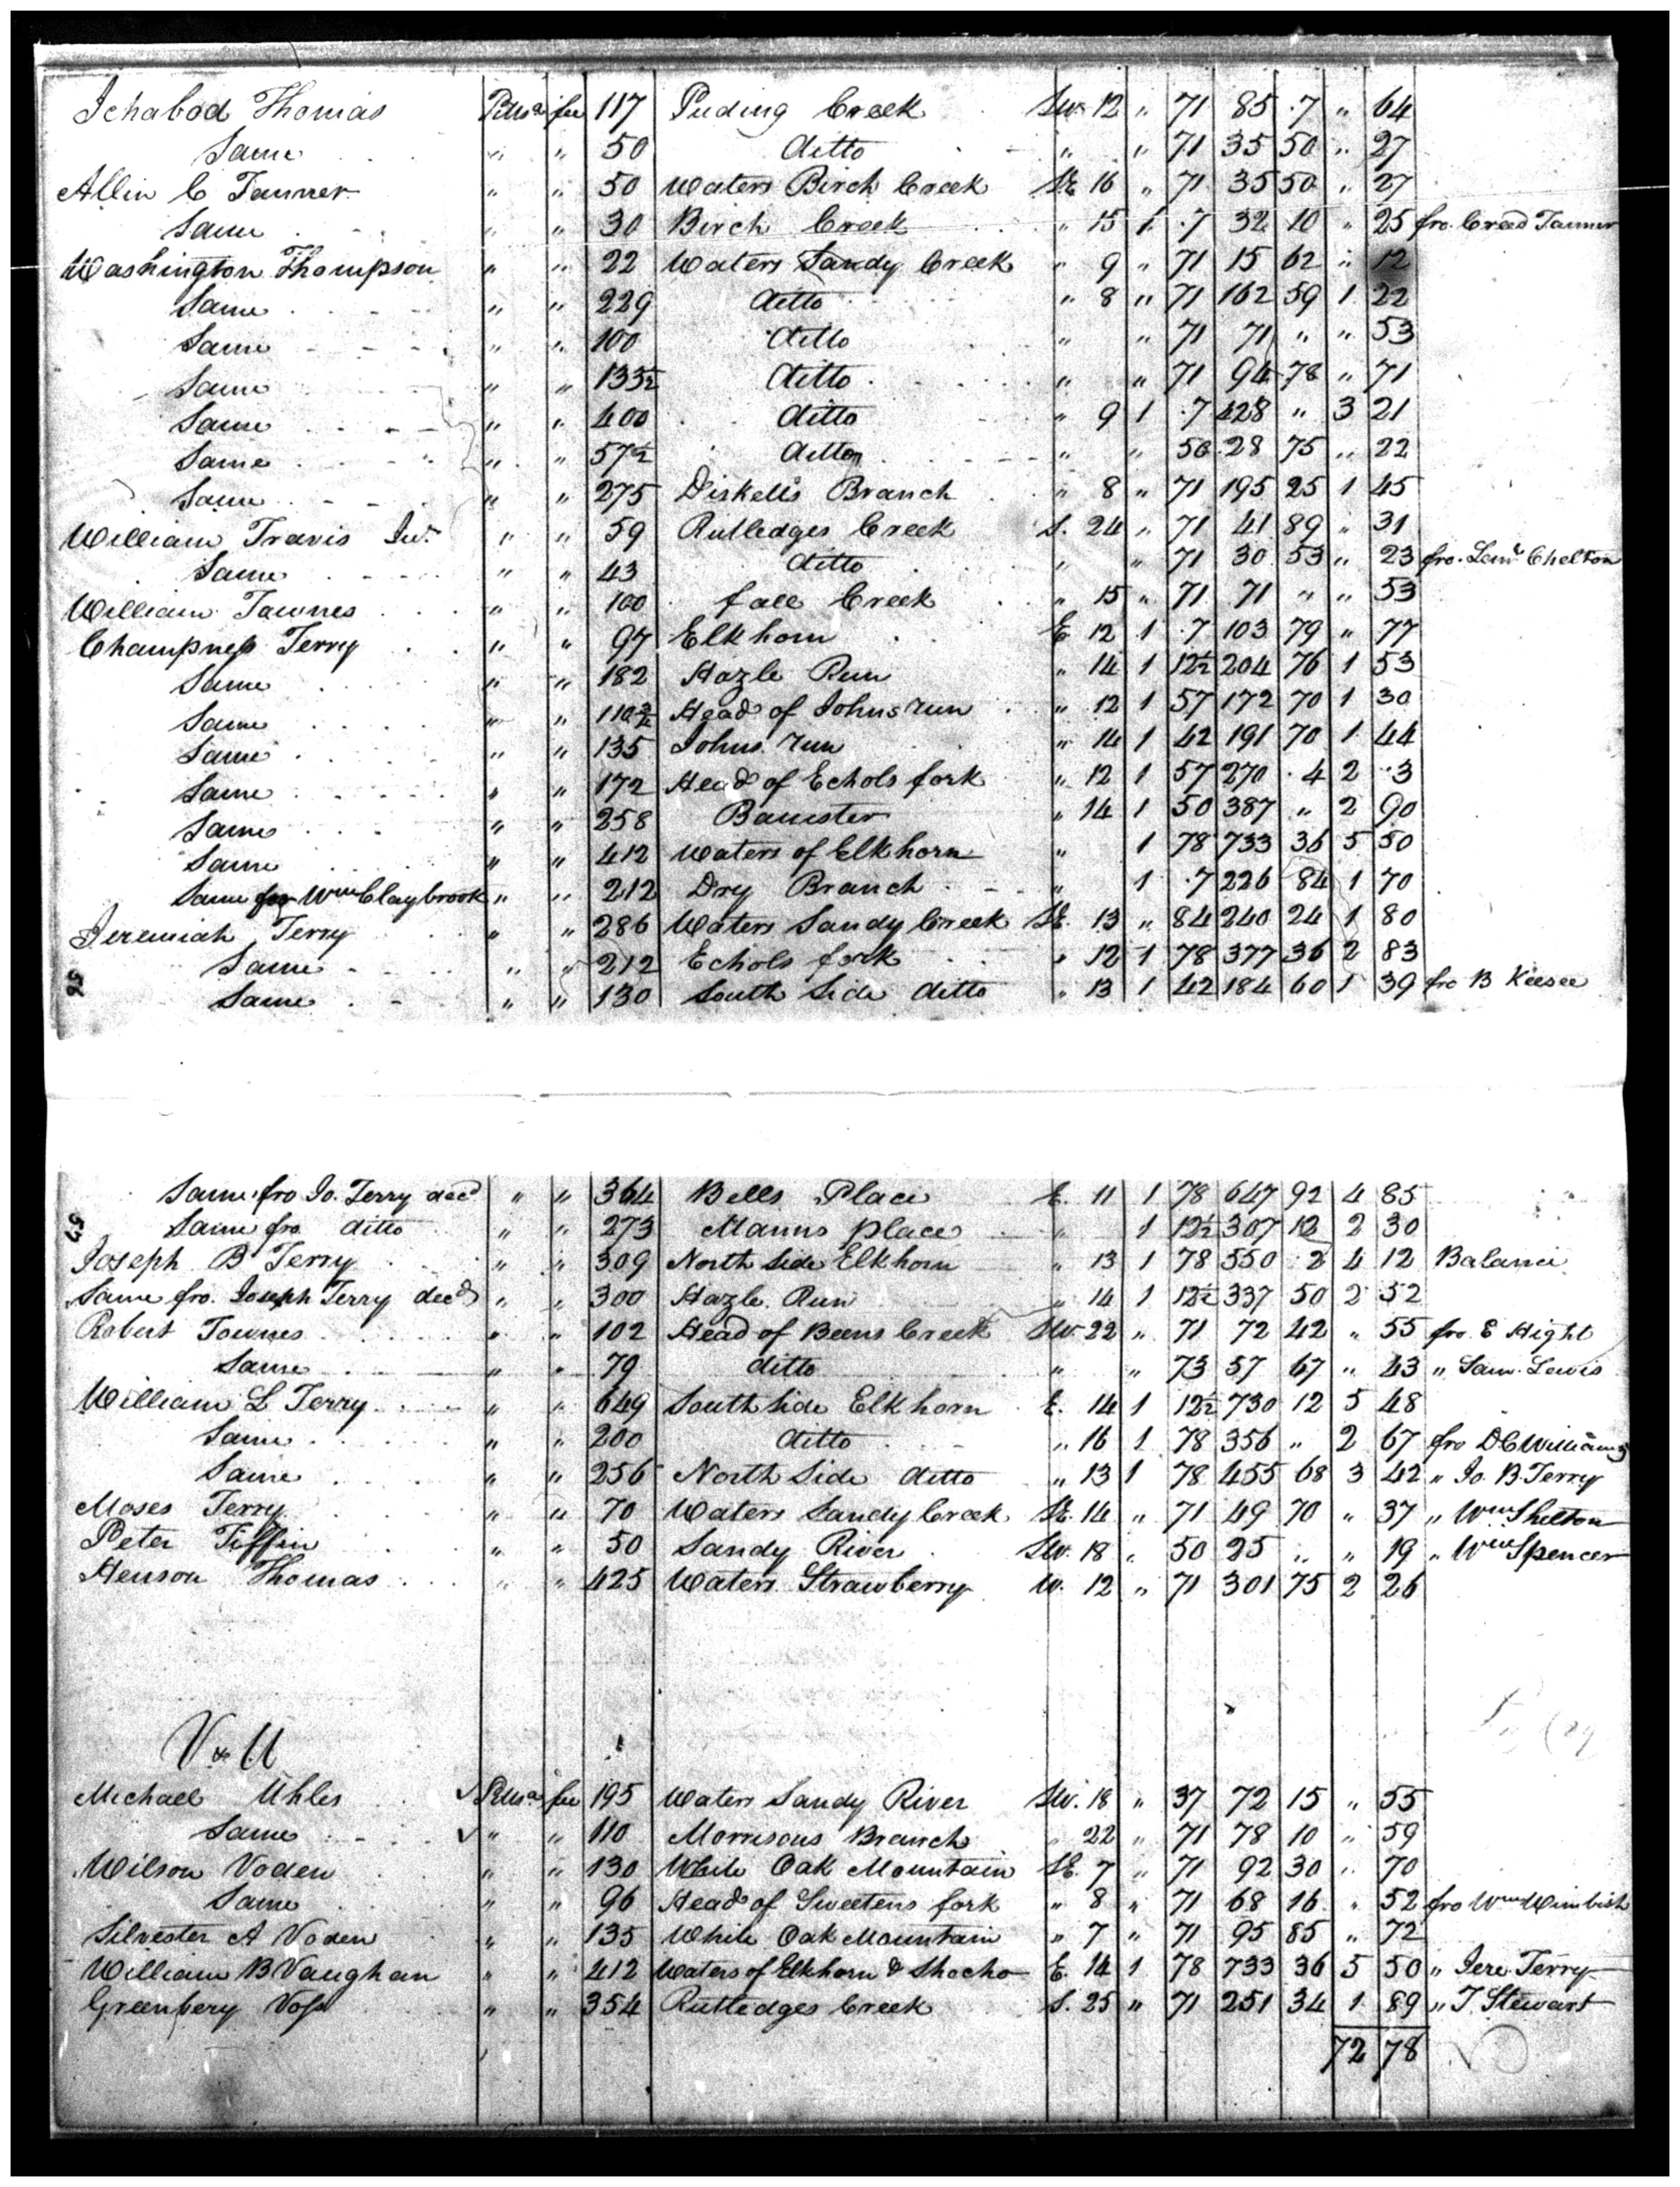 Ichabod Thomas Pittsa fee 117 Puding Creek SW. 12 " 71 85 .7 " 64
Same " " 50 ditto " " 71 35 50 " 27
Allin C Tanner " " 50 Waters Birch Creek SE 16 " 71 35 50 " 27
Same " " 30 Birch Creek " 15 1 .7 32 10 " 25 fro. Creed Tanner
Washington Thompson " " 22 Waters Sandy Creek " 9 " 71 15 62 " 12
Same " " 229 ditto " 8 " 71 162 59 1 22
Same " " 100 ditto " " 71 71 " " 53
Same " " 133½ ditto " " 71 94 78 " 71
Same " " 400 ditto " 9 1 .7 428 " 3 21
Same " " 57½ ditto " " 50 28 75 " 22
Same " " 275 Diskell's Branch " 8 " 71 195 25 1 45
William Travis Jur. " " 59 Rutledges Creek S. 24 " 71 41 89 " 31
Same " " 43 ditto " " 71 30 53 " 23 fro. Leml Chelton
William Townes " " 100 fall Creek " 15 " 71 71 " " 53
Champness Terry " " 97 Elkhorn E 12 1 .7 103 79 " 77
Same " " 182 Hazle Run " 14 1 12½ 204 76 1 53
Same " " 110 Head of Johns run " 12 1 57 172 70 1 30
Same " " 135 Johns run " 14 1 42 191 70 1 44
Same " " 172 Head of Echols fork " 12 1 57 270 .4 2 .3
Same " " 258 Banister " 14 1 50 387 " 2 90
Same " " 412 Waters of Elkhorn " 1 78 733 36 5 50
Same for Wm Claybrook " " 212 Dry Branch " 1 .7 226 84 1 70
Jeremiah Terry " " 286 Waters Sandy Creek SE. 13 " 84 240 24 1 80
Same " " 212 Echols fork " 12 1 78 377 36 2 83
56 Same " " 130 South Side ditto " 13 1 42 184 60 1 39 fro B Keesee
Same fro Jo. Terry decd " " 364 Bells Place E. 11 1 78 647 92 4 85
57 Same fro ditto " " 273 Manns place " 1 12½ 307 12 2 30
Joseph B Terry " " 309 North Side Elkhorn " 13 1 78 550 .2 4 12 Balance
Same fro. Joseph Terry decd " " 300 Hazle Run " 14 1 12½ 337 50 2 52
Robert Townes " " 102 Head of Beens Creek SW. 22 " 71 72 42 " 55 fro. E Hight
Same " " 79 ditto " " 73 57 67 " 43 " Sam. Lewis
William L Terry " " 649 South Side Elkhorn E. 14 1 12½ 730 12 5 48
Same " " 200 ditto " 16 1 78 356 " 2 67 fro D C Williams
Same " " 256 North Side ditto " 13 1 78 455 68 3 42 " Jo. B. Terry
Moses Terry " " 70 Waters Sandy Creek SE. 14 " 71 49 70 " 37 " Wm Shelton
Peter Tiffin " " 50 Sandy River SW. 18 " 50 25 " " 19 " Wm Spencer
Henson Thomas " " 425 Waters Strawberry W. 12 " 71 301 75 2 26
V & U
Michael Uhles Pittsa fee 195 Waters Sandy River SW. 18 " 37 72 15 " 55
Same " " 110 Morrisons Branch " 22 " 71 78 10 " 59
Wilson Voden " " 130 White Oak Mountain SE. 7 " 71 92 30 " 70
Same " " 96 Head of Sweetens fork " 8 " 71 68 16 " 52 fro Wm Wimbish
Silvester A Voden " " 135 White Oak Mountain " 7 " 71 95 85 " 72
William B Vaughan " " 412 Waters of Elkhorn & Shocho E. 14 1 78 733 36 5 50 " Jere Terry
Greenbery Voss " " 354 Rutledges Creek S. 25 " 71 251 34 1 89 " T. Stewart
72 78